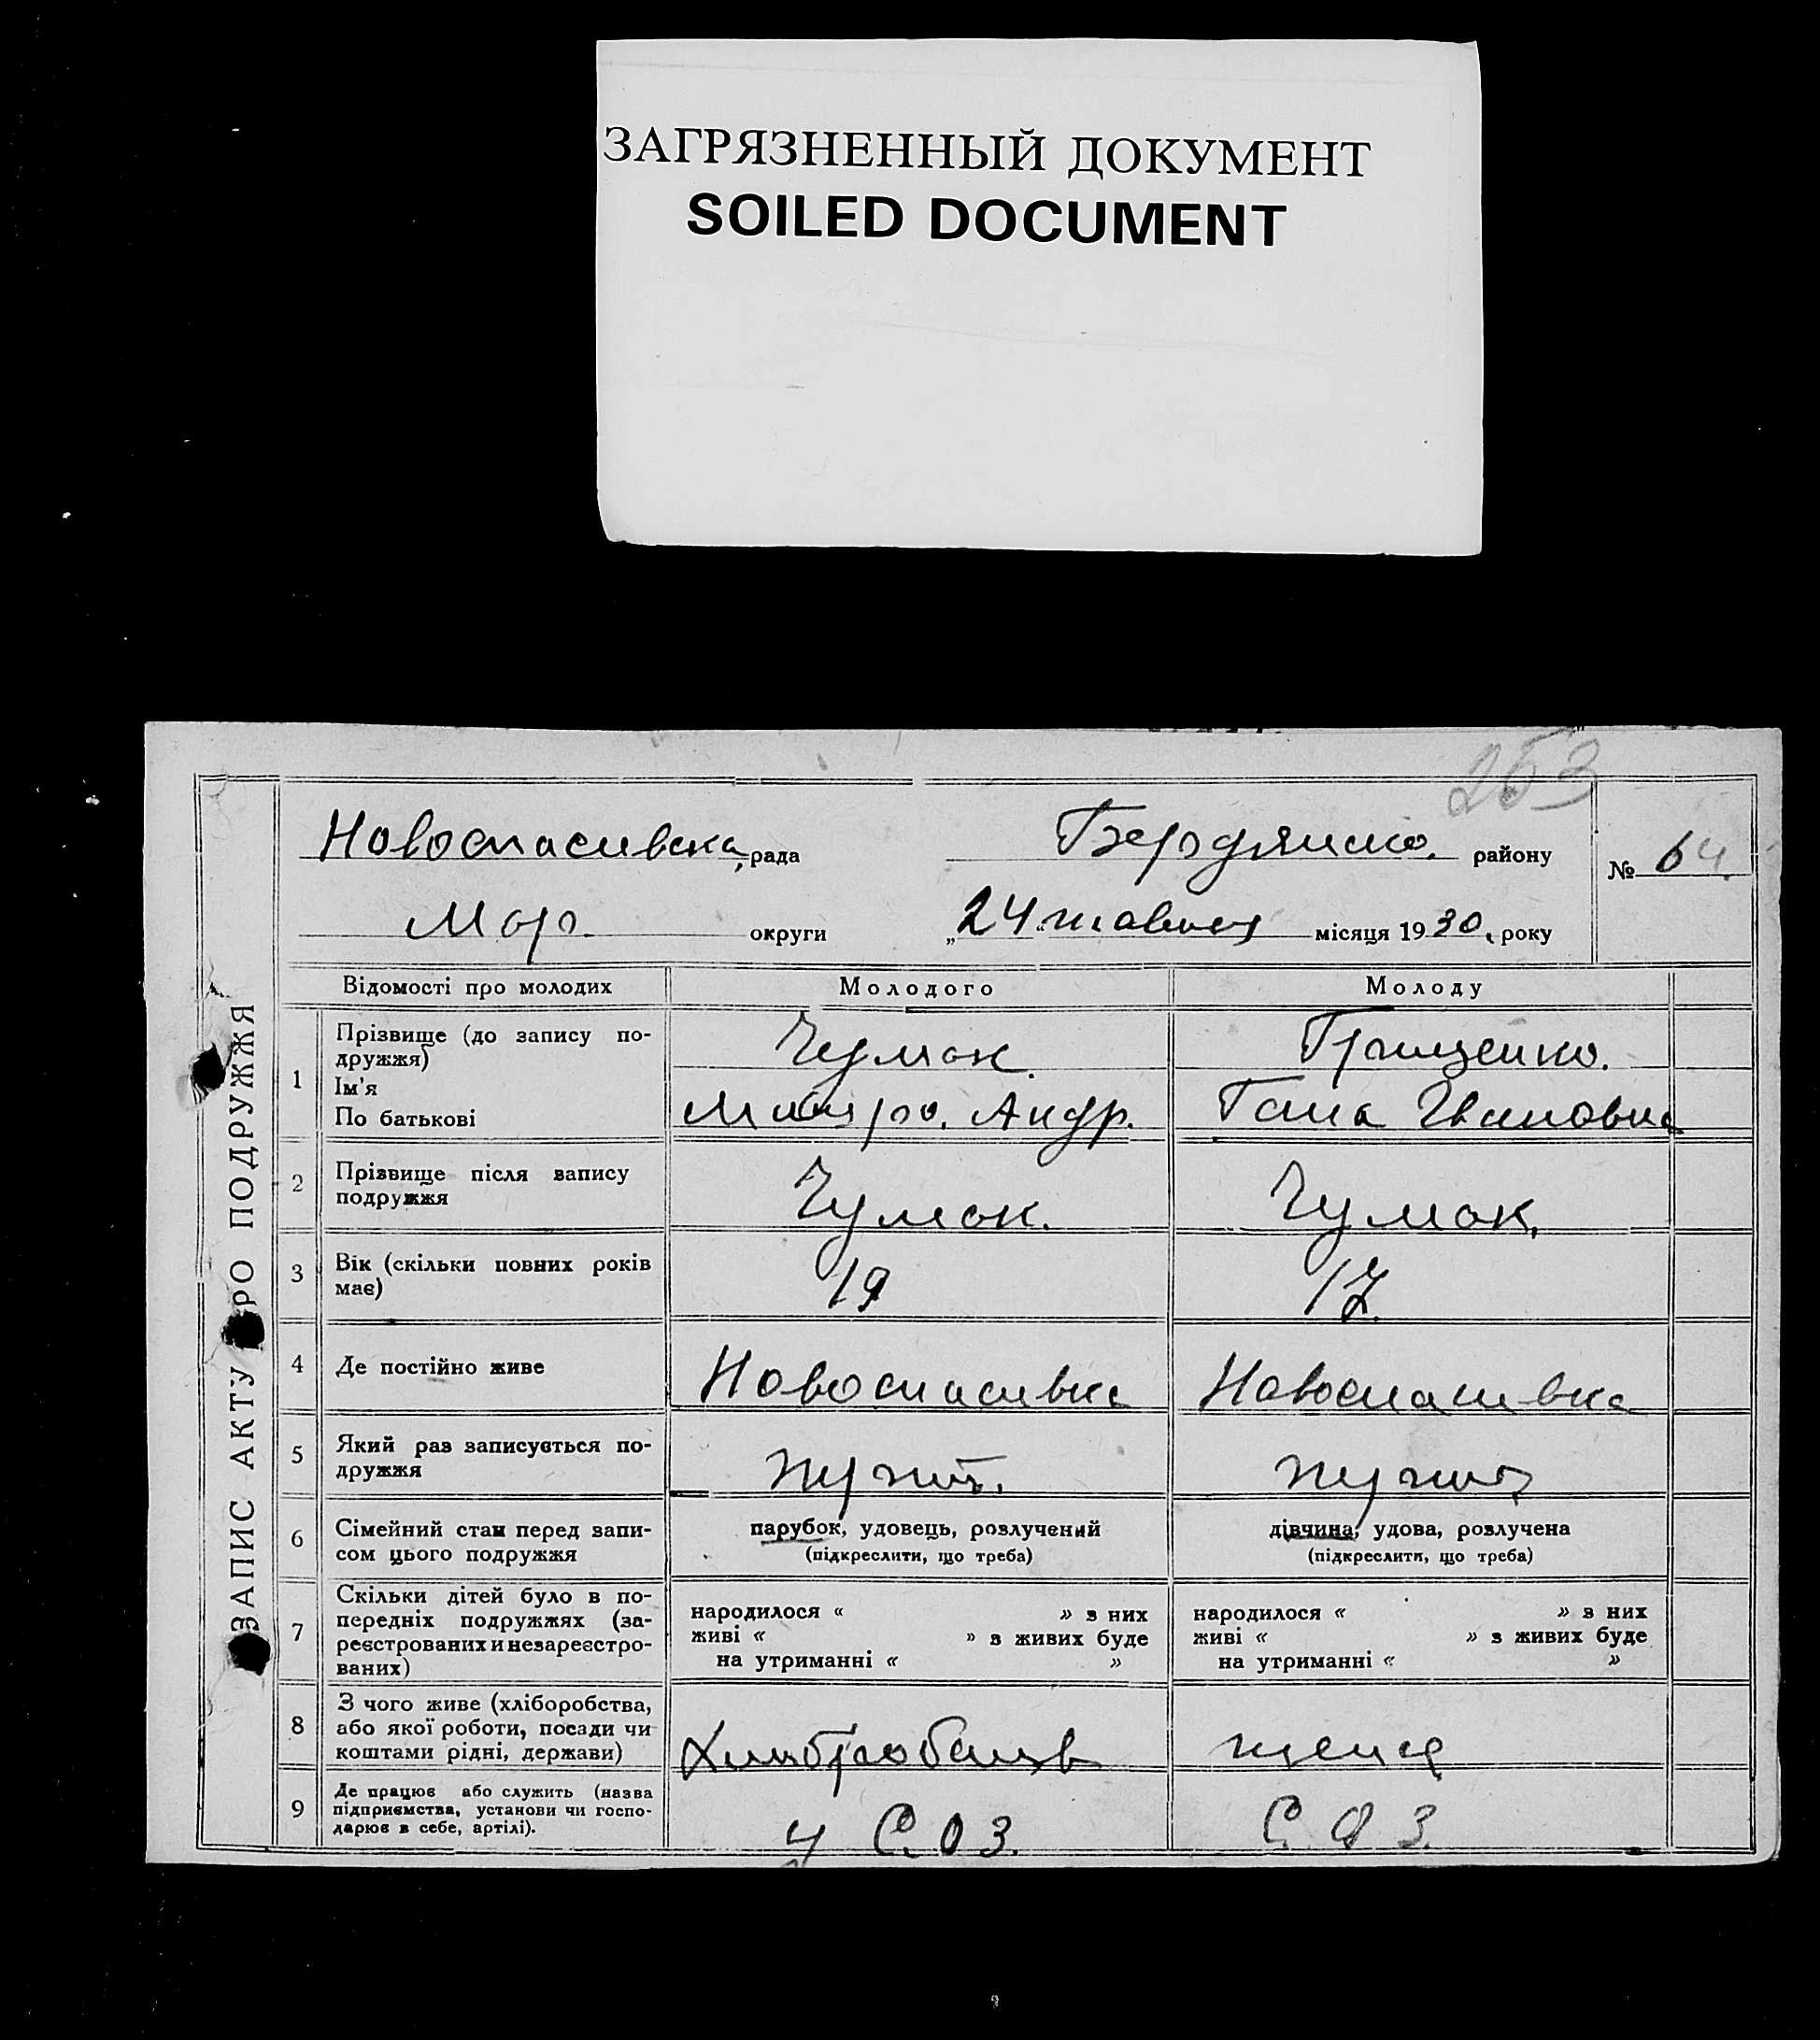 ЗАГРЯЗНЕННЫЙ ДОКУМЕНТ
SOILED DOCUMENT
253
Новоспасивска рада
Бердянсько. району
№ 64.
Мар. округи
„24" жовтня місяця 1930, року
ЗАПИС АКТУ РО ПОДРУЖЖЯ
Відомості про молодих
Молодого
Молоду
1
Прізвище (до запису по-
дружжя)
Ім'я
По батькові
Чумак.
Андр.
Грищенко.
Гана Івановна
2
Прізвище після запису
подружжя
Чумак.
Чумак,
3
Вік (скільки повних років
має)
19
17.
4
Де постійно живе
Новоспасивка
Новоспасивка
5
Який раз записується по-
дружжя
6
Сімейний стан перед запи-
сом цього подружжя
парубок, удовець, розлучений
(підкреслити, що треба)
дівчина, удова, розлучена
(підкреслити, що треба)
7
Скільки дітей було в по-
передніх подружжях (за-
реєстрованих и незареєстро-
ваних)
народилося « » з них
живі « » з живих буде
на утриманні « »
народилося « » з них
живі « » з живих буде
на утриманні « »
8
З чого живе (хліборобства,
або якої роботи, посади чи
коштами рідні, держави)
9
Де працює або служить (назва
підприємства, установи чи госпо-
дарює в себе, артілі).
у С.О.З.
С.О.З.